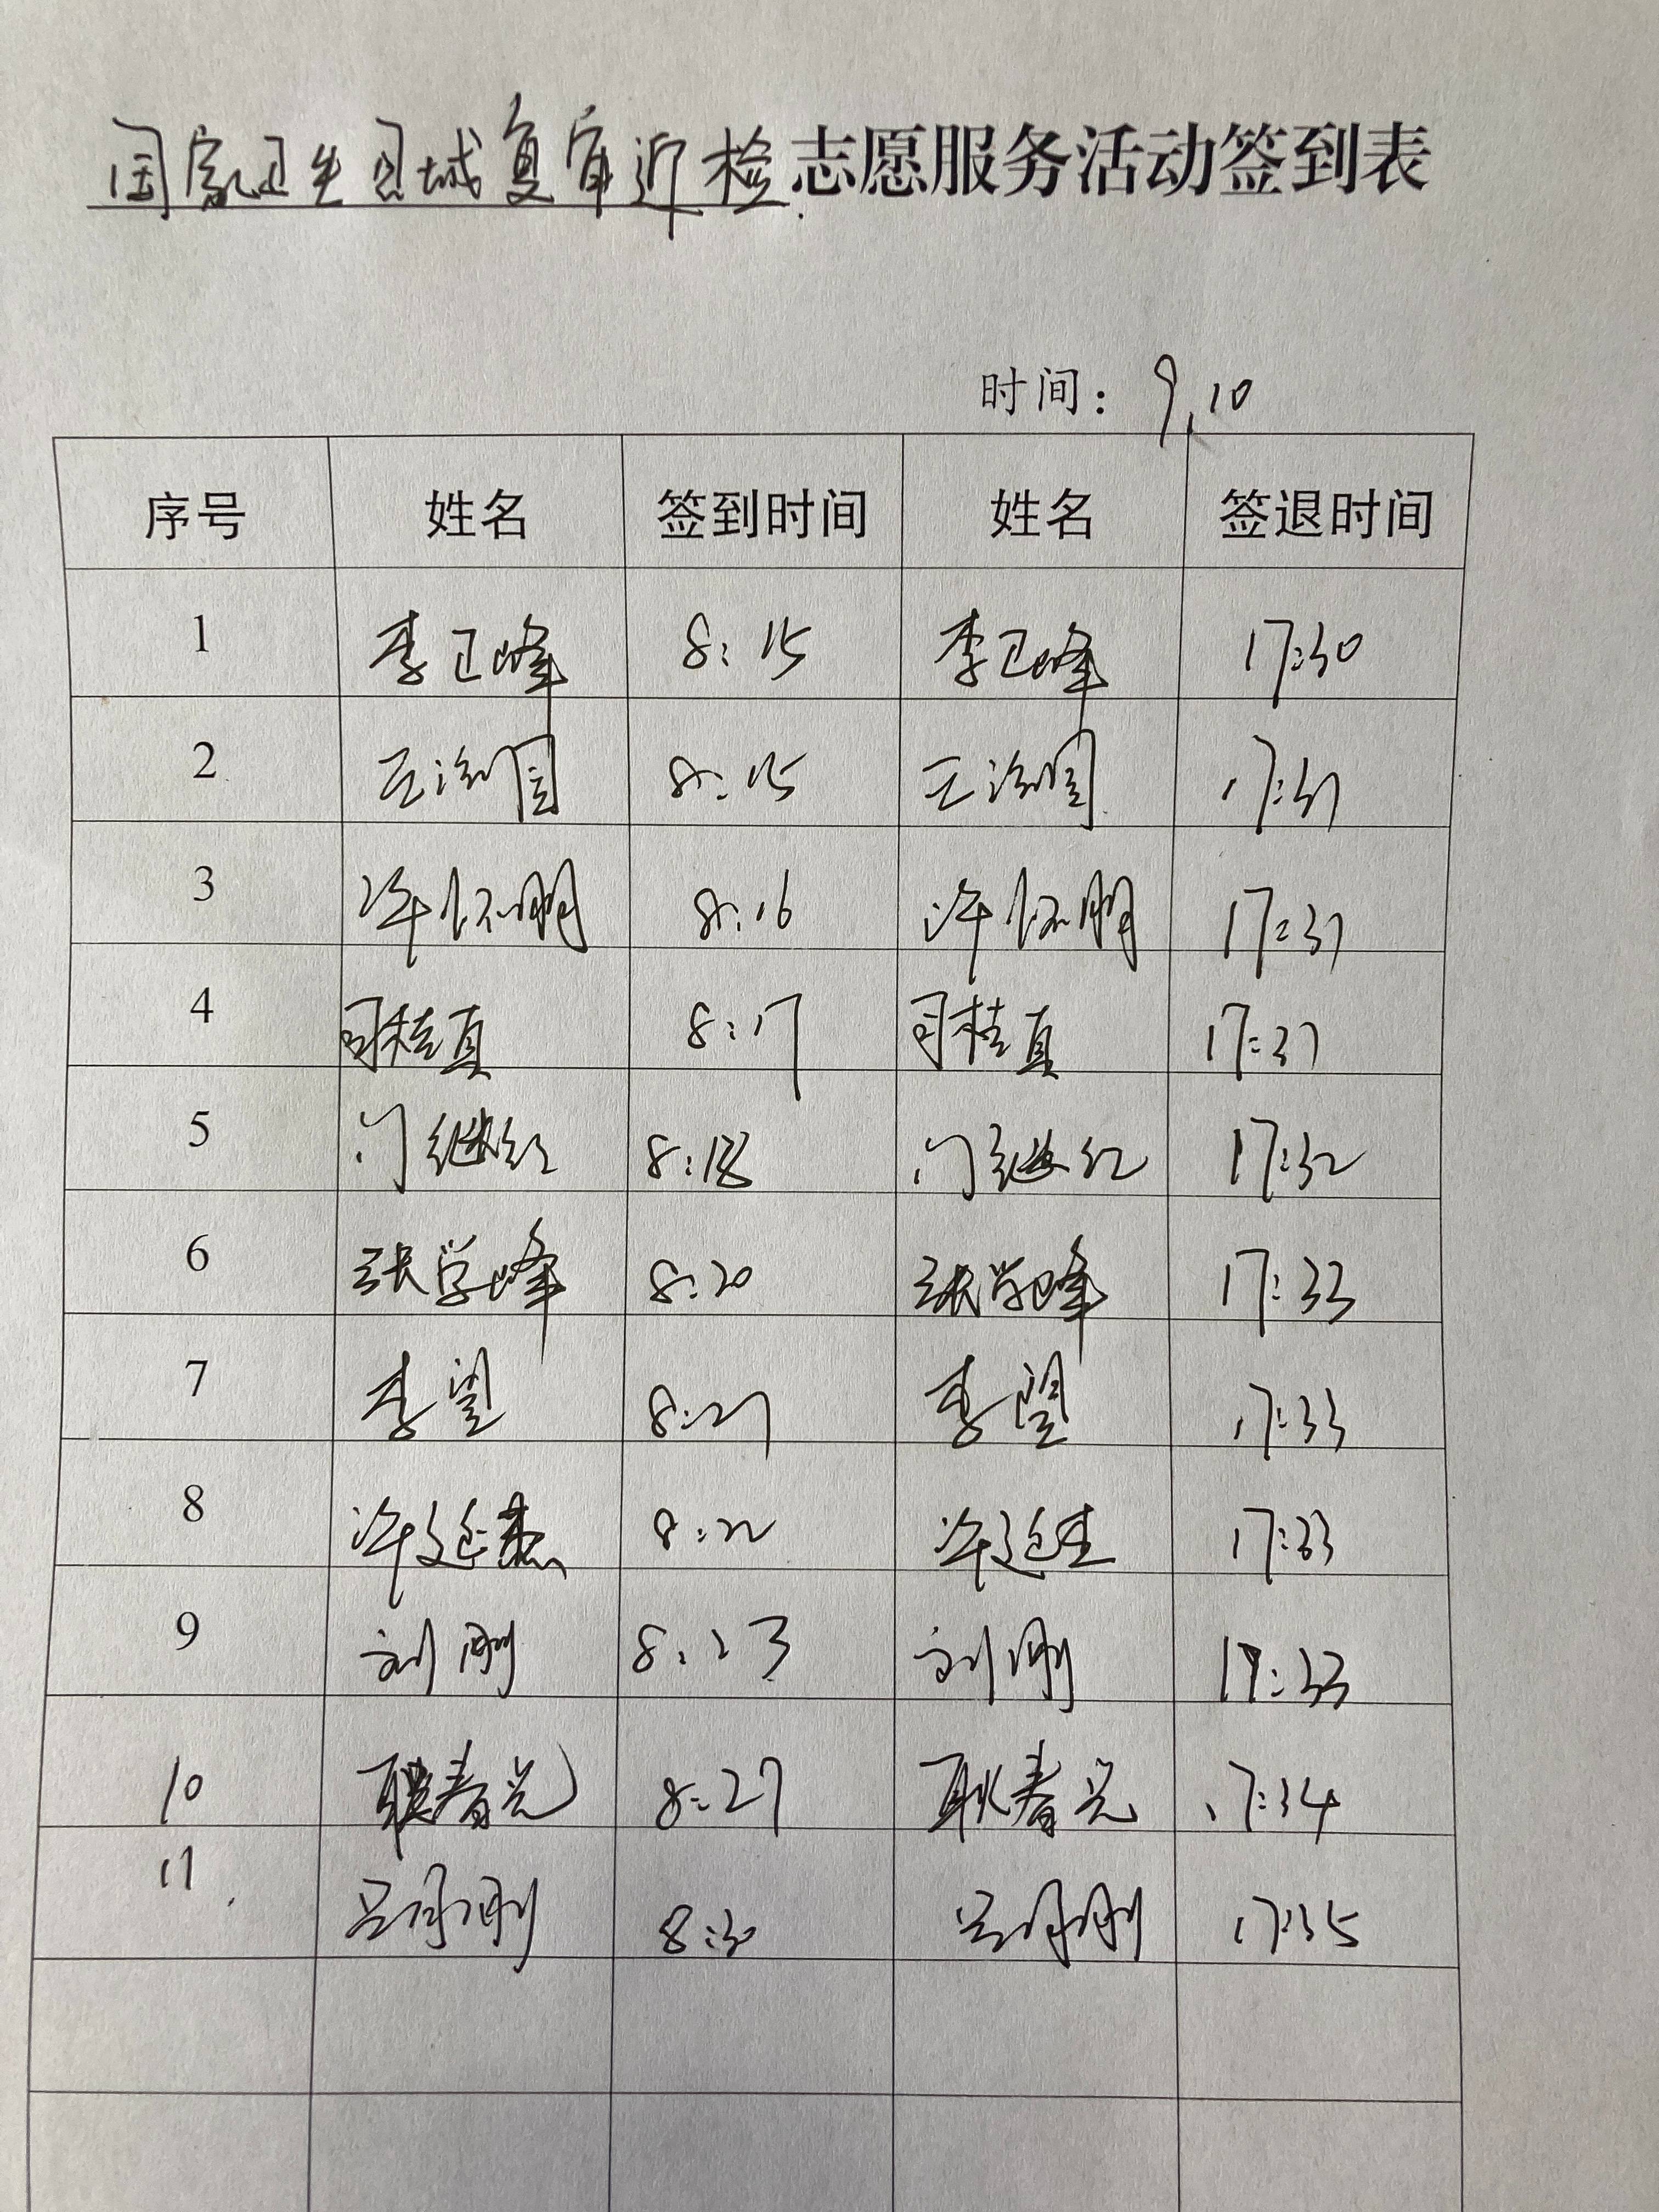 国家卫生县城复审迎检志愿服务活动签到表
时间：9.10
序号 姓名 签到时间 姓名 签退时间
1 李卫峰 8:15 李卫峰 17:30
2 王治国 8:15 王治国 17:31
3 许怀明 8:16 许怀明 17:31
4 司桂真 8:17 司桂真 17:31
5 门继红 8:18 门继红 17:32
6 张学峰 8:20 张学峰 17:33
7 李望 8:21 李望 17:33
8 许延杰 8:22 许延 17:33
9 刘刚 8:23 刘刚 17:33
10 耿春光 8:27 耿春光 17:34
11 刚 8:30 刚 17:35